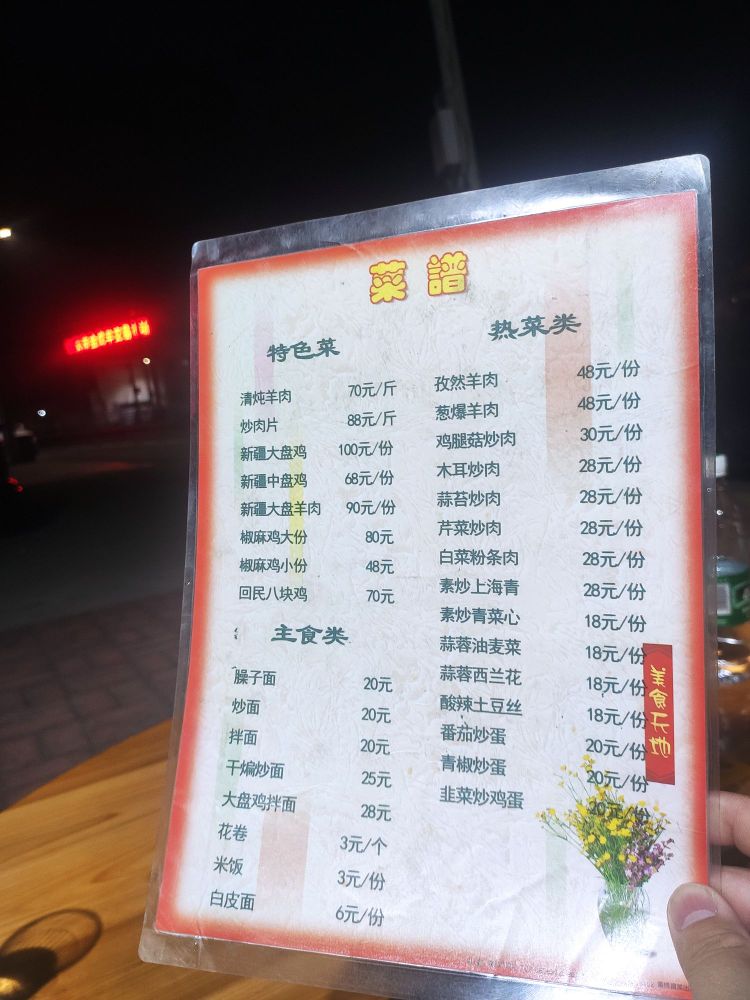 菜 譜
特色菜
清炖羊肉 70元/斤
炒肉片 88元/斤
新疆大盘鸡 100元/份
新疆中盘鸡 68元/份
新疆大盘羊肉 90元/份
椒麻鸡大份 80元
椒麻鸡小份 48元
回民八块鸡 70元
主食类
臊子面 20元
炒面 20元
拌面 20元
干煸炒面 25元
大盘鸡拌面 28元
花卷 3元/个
米饭 3元/份
白皮面 6元/份
热菜类
孜然羊肉 48元/份
葱爆羊肉 48元/份
鸡腿菇炒肉 30元/份
木耳炒肉 28元/份
蒜苔炒肉 28元/份
芹菜炒肉 28元/份
白菜粉条肉 28元/份
素炒上海青 28元/份
素炒青菜心 18元/份
蒜蓉油麦菜 18元/份
蒜蓉西兰花 18元/份
酸辣土豆丝 18元/份
番茄炒蛋 20元/份
青椒炒蛋 20元/份
韭菜炒鸡蛋 20元/份
美食天地